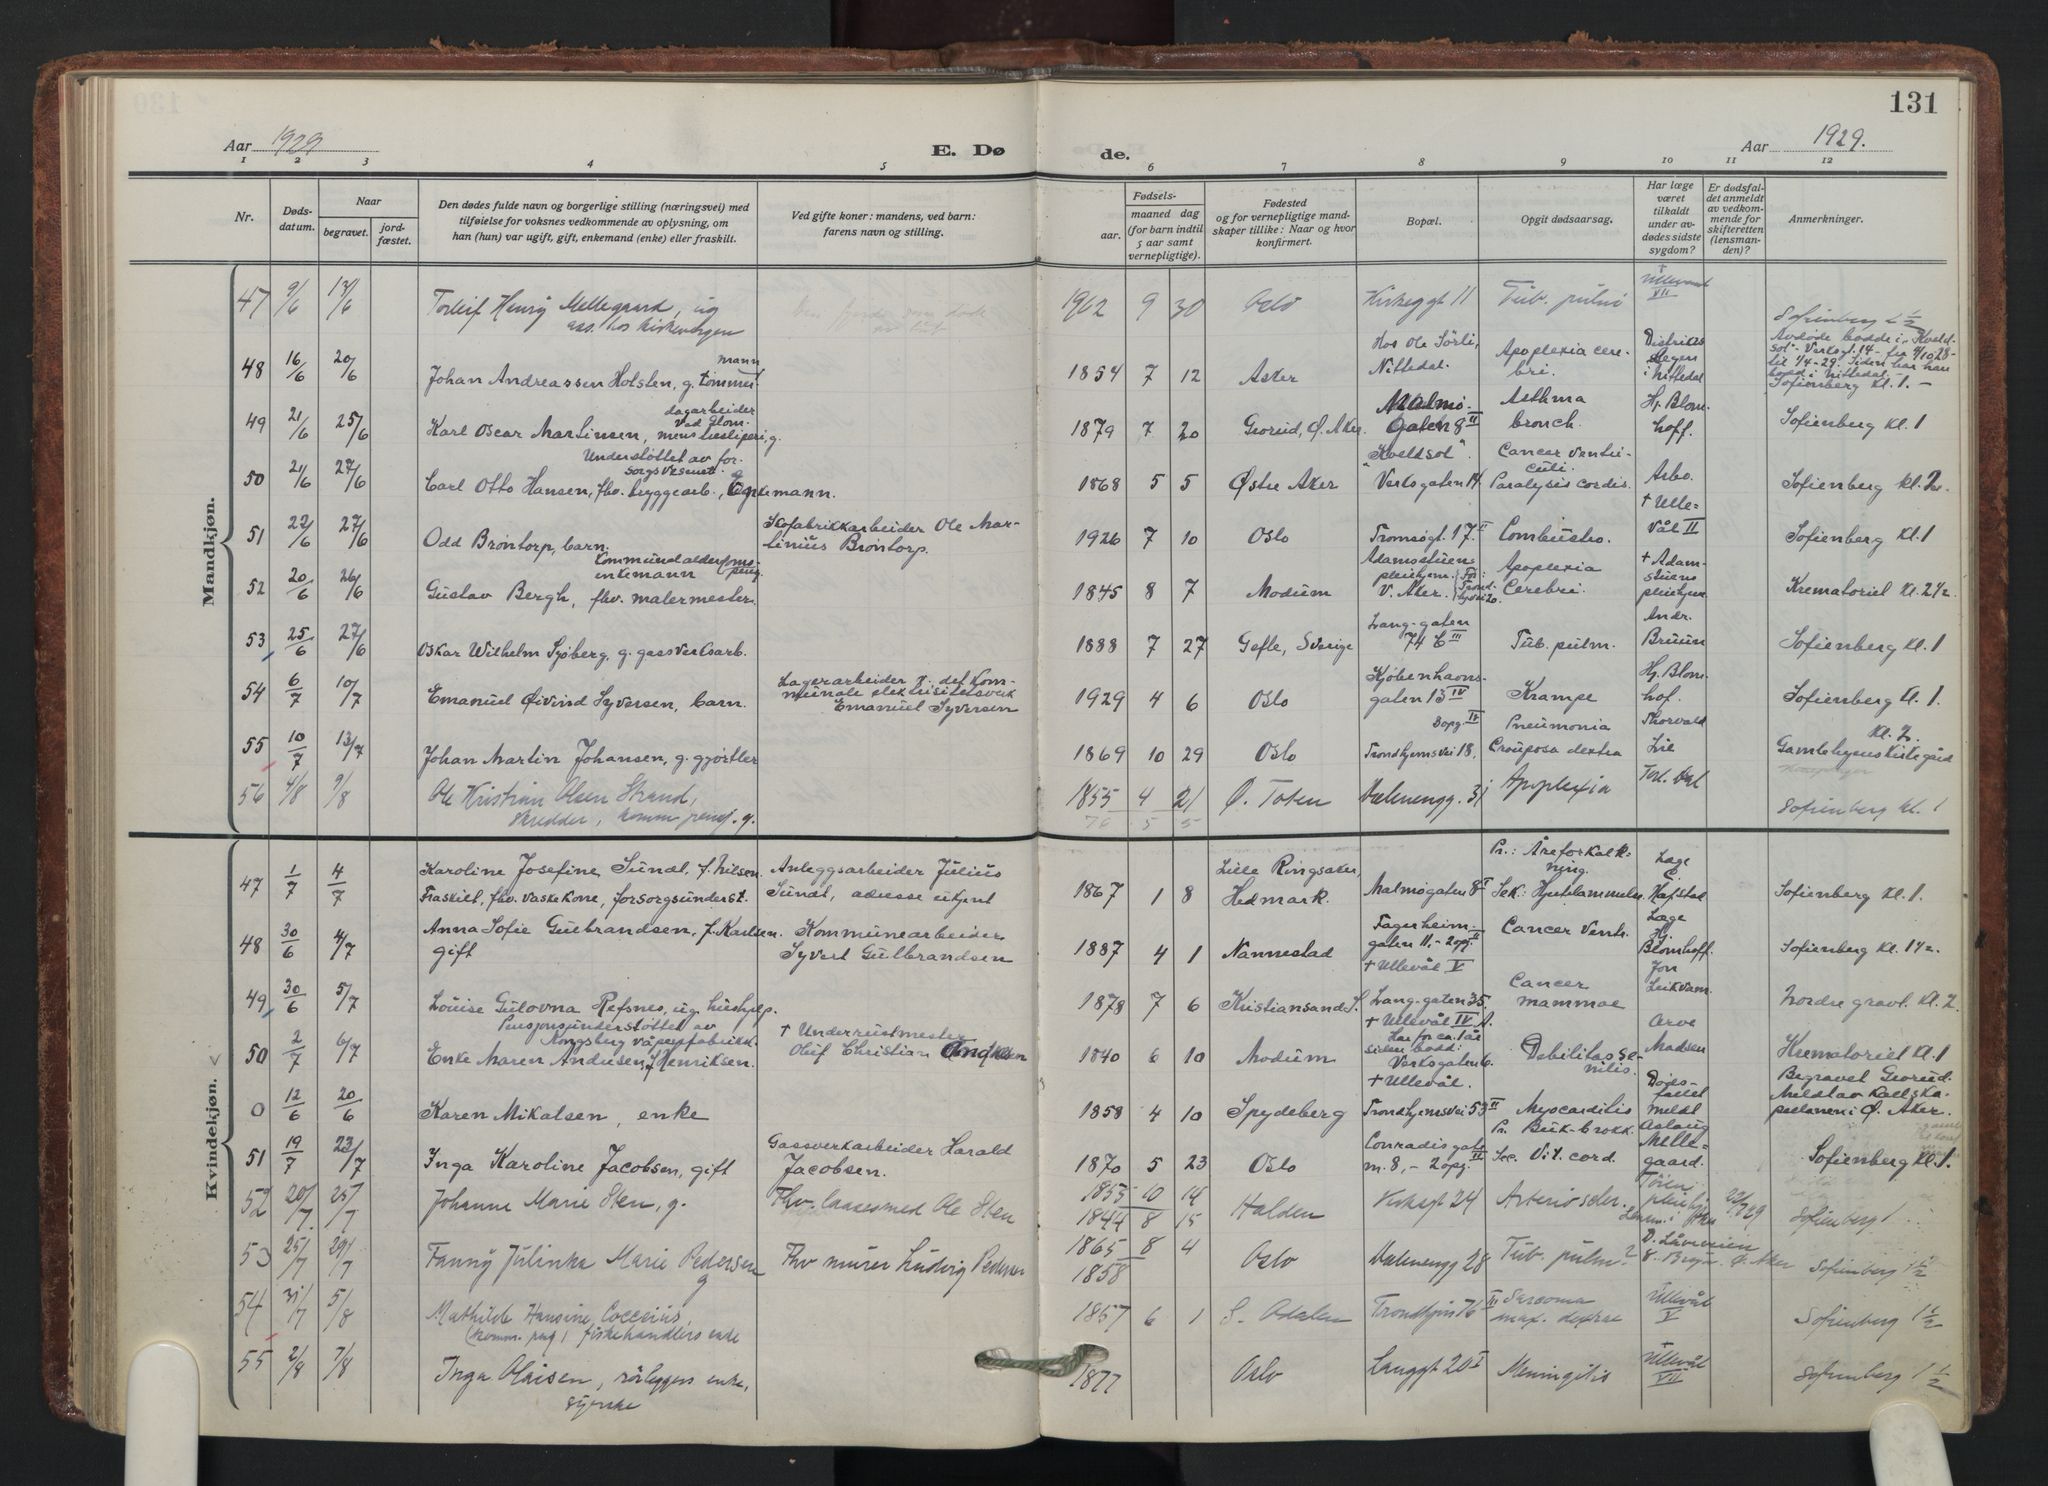 131
Aar 1929
E. Dø
de.
Aar 1929.
1 2 3 4 5 6 7 8 9 10 11 12
Nr.
Døds-
datum.
Naar
begravet.
jord-
fæstet.
Den dødes fulde navn og borgerlige stilling (næringsvei) med
tilføielse for voksnes vedkommende av oplysning, om
han (hun) var ugift, gift, enkemand (enke) eller fraskilt.
Ved gifte koner: mandens, ved barn:
farens navn og stilling.
Fødsels-
aar.
maaned
dag
(for barn indtil
5 aar samt
vernepligtige).
Fødested
og for vernepligtige mand-
skaper tillike: Naar og hvor
konfirmert.
Bopæl.
Opgit dødsaarsag.
Har læge
været
tilkaldt
under av-
dødes sidste
sygdom?
Er dødsfal-
det anmeldt
av vedkom-
mende for
skifteretten
(lensman-
den)?
Anmerkninger.
Mandkjøn.
47 9/6 13/6 Torleif Henry Mellegaard, ug
ass. hos kirkevergen
1902 9 30 Oslo Kirkeggt 11 Tub. pulm
+ Ullevaal VII
Sofienberg 2 1/2
48 16/6 20/6 Johan Andreassen Holsten, g. tømmermann
1854 7 12 Asker
Hos Ole Sörli,
Nittedal
Apoplexia cere-
bri.
Distrikts
lægen
i Nittedal
Avdøde bodde i "Kveld-
sol" Verksgt. 14 - fra 4/10 28 -
til 1/4-29. Siden har han
bodd i Nittedal.
Sofienberg Kl. 1. -
49 21/6 25/6 Karl Oscar Martinsen, g.
dagarbeider
ved Glom.
1879 7 20 Grorud, Ø. Aker.
Malmö-
gaten 8 II
Asthma
bronch.
Hj. Blom-
hoff.
Sofienberg Kl. 1
50 21/6 27/6
Understøttet av for-
sorgsvesenet.
Carl Otto Hansen, fhv. bryggearb., Enkemann.
1868 5 5 Østre Aker
"Kveldsol"
Verksgaten 14
Cancer ventri-
culi.
Paralysis cordis.
Arbo.
Sofienberg Kl. 2.
51 22/6 27/6 Odd Bröntorp, barn.
Skofabrikkarbeider Ole Mar-
tinius Bröntorp.
1926 7 10 Oslo Tromsøgt. 17 II Combustio.
+ Ulle-
vål II
Sofienberg Kl. 1
52 20/6 26/6
Kommunal alderspens-
enkemann
Gustav Bergh, fhv. malermester.
1845 8 7 Modum
Adamstuen
pleiehjem
V. Aker.
Apoplexia
Cerebri.
+ Adam-
stuens
pleiehjem
Krematoriet Kl. 2 1/2.
53 25/6 27/6 Oskar Wilhelm Sjöberg, g. gassverksarb.
1888 7 27 Gefle, Sverige
Lang-gaten
74 b III
Tub. pulm.
Andr.
Bruun
Sofienberg Kl. 1
54 6/7 10/7 Emanuel Øivind Syversen, barn.
Lagerarbeider v. det kom-
munale elektrisitetsverk
Emanuel Syversen
1929 4 6 Oslo
Kjøbenhavns-
gaten 13 IV
Krampe
Hj. Blom-
hof.
Sofienberg Kl. 1.
55 10/7 13/7 Johan Martin Johansen, g. gjørtler
1869 10 29 Oslo
3 opg. IV
Trondhjemsvei 18.
Pneumonia
Crouposa dextra
Thorvald
Lie
Kl. 2.
Gamlebyens Kirkegård
56 4/8 9/8 Ole Kristian Olsen Strand,
skredder, komm pensj. g.
1855 4 21 Ø. Toten Vaalerenggt. 31 Apoplexia
Torl. Dal
Sofienberg kl. 1
76 5 5
Kvindekjøn.
47 1/7 4/7 Karoline Josefine Sundt f. Nilsen.
Fraskilt, fhv. vaskekone, forsorgsunderst.
Anleggsarbeider Julius
Sundt, adresse ukjent
1867 1 8
Lille Ringsaker,
Hedmark.
Malmøgaten 8 I
Pr.: Åreforkalk-
ning.
Sek: Hjertelammelse
Læge
Hofstad
Sofienberg Kl. 1.
48 30/6 4/7 Anna Sofie Gulbrandsen, f. Karlsen.
gift
Kommunearbeider
Syvert Gulbrandsen
1887 4 1 Nannestad
Fagerheim-
gaten 11, - 2 opg. II
+ Ullevål V
Cancer Ventr.
Læge
Hj.
Blomhoff.
Sofienberg Kl. 1 1/2.
49 30/6 5/7 Louise Gulovna Refsnes, ug. hushjelp.
1878 7 6 Kristiansand S.
Lang-gaten 35.
+ Ullevål IV A.
Cancer
mammae
Jon
Leikvam.
Nordre gravl. Kl. 2
50 2/7 6/7
Pensjonsunderstøttet av
Kongsberg våpenfabrikk.
Enke Maren Andersen, f. Henriksen.
+ Underrustmester
Oluf Christian
1840 6 10 Modum
Har for ca. 1 år
siden bodd:
Verksgaten 6.
+ Ullevål.
Debilitas se-
nilis.
Arve
Madsen
Krematoriet Kl. 1
0 12/6 20/6 Karen Mikalsen, enke
1858 4 10 Spydeberg Trondhjemsvei 53 II Myocarditis
Døds-
fallet
meldt
Begravet Grorud.
Meldt av kallska-
pellanen i Ø. Aker.
51 19/7 23/7 Inga Karoline Jacobsen, gift
Gassverkarbeider Harald
Jacobsen.
1870 5 23 Oslo
Conradisgate
m. 8, - 2 opg. II
Pr. Buk-brokk.
Sec. Vit. cord.
Aslaug
Melle-
gaard.
Sofienberg Kl. 1.
52 20/7. 25/7 Johanne Marie Sten, g.
Fhv. Ole Sten
1855 10 14
1844 8 15 Halden Verksgt 24 Arterioscler.
22/7 29
Sofienberg 1
53 25/7 29/7 Fanny Julinka Marie Pedersen
g
Fhv murer Ludvig Pedersen
1865 8 4
1858
Oslo Vaalerenggt 28 Tub. pulm?
Ø. Aker
Sofienberg 1 1/2
54 31/7 5/8 Mathilde Hansine Cocceius,
(komm. peng) fiskehandlers enke
1857 6 1 S. Odalen Trondhjvs 76 III
Sarcoma
max. dextrae
Ullevål
V
Sofienberg 1 1/2
55 2/8 7/8 Inga Olaisen, rörleggers enke,
syerske
1877 Oslo Langgt 20 I Meningitis
Ullevål
VII
Sofienberg 1 1/2